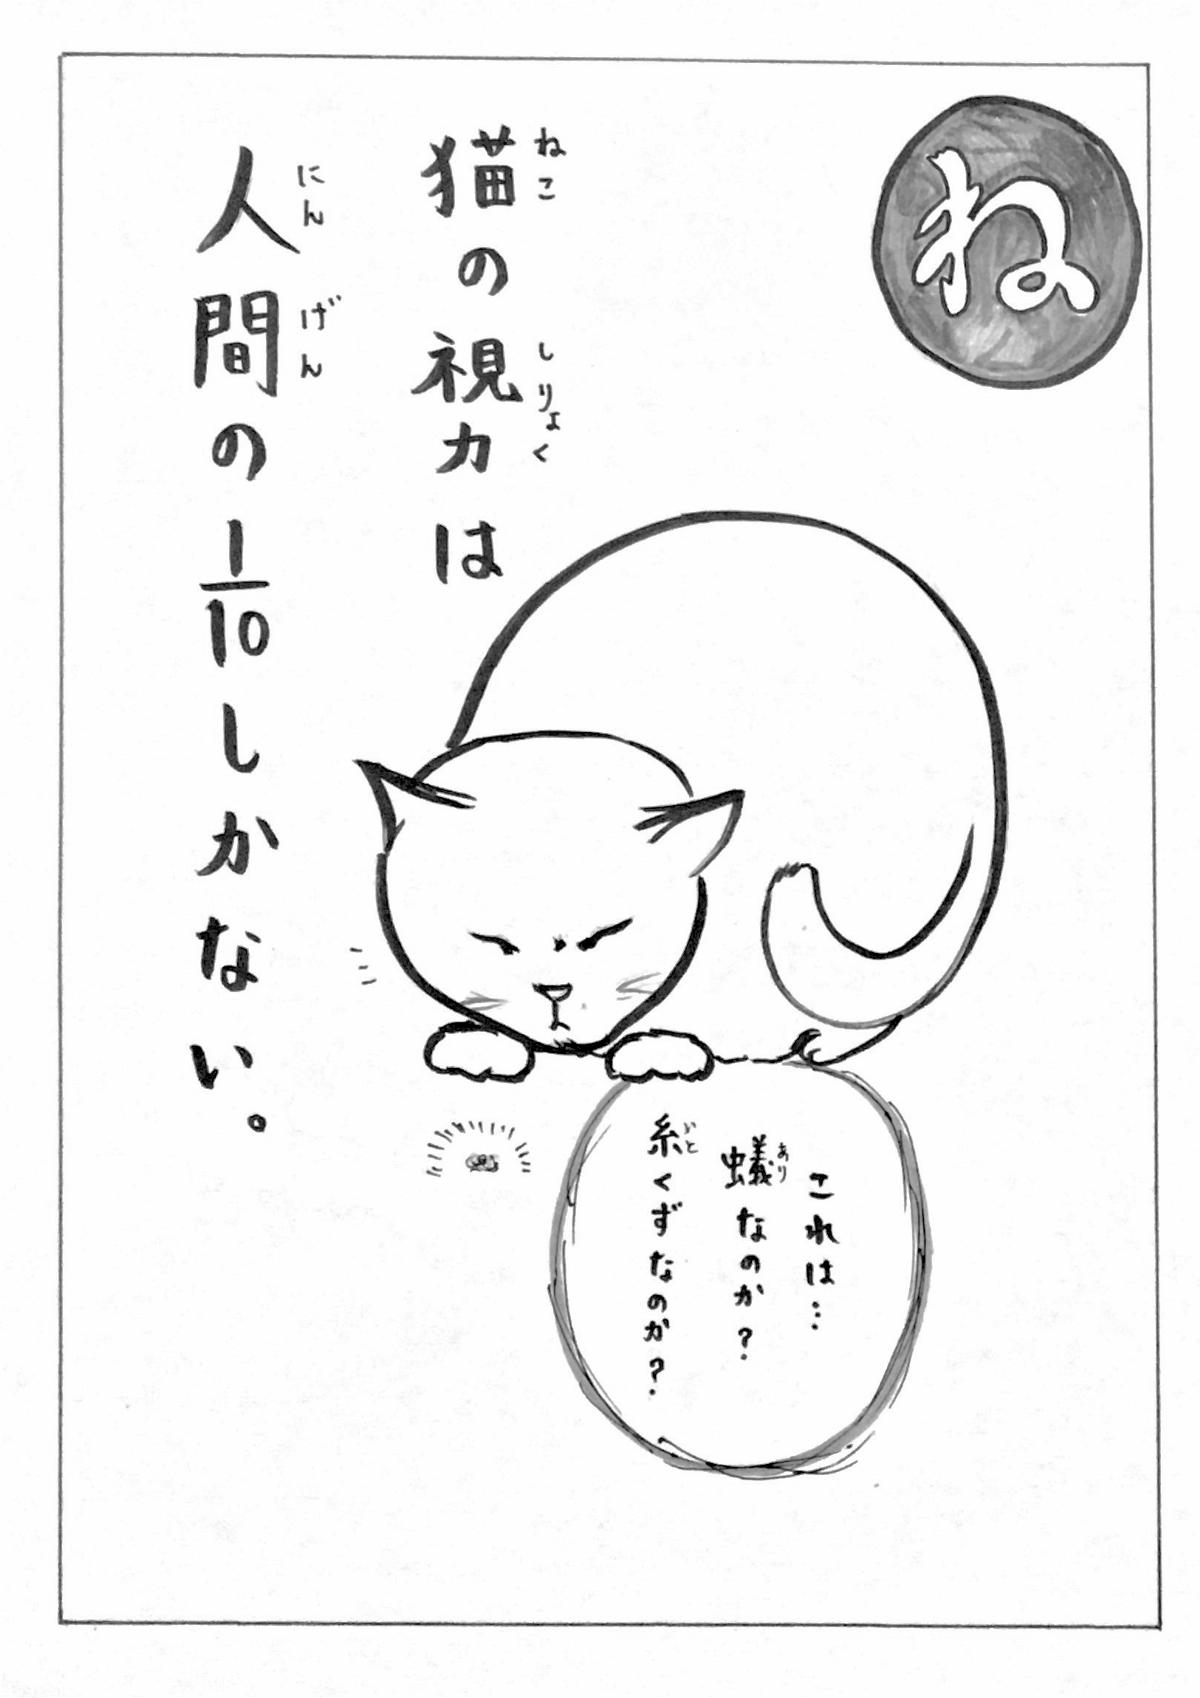 ね
猫の視力は
ねこ
しりょく
人間の1/10しかない。
にん
げん
これは…
蟻なのか?
あり
糸くずなのか?
いと